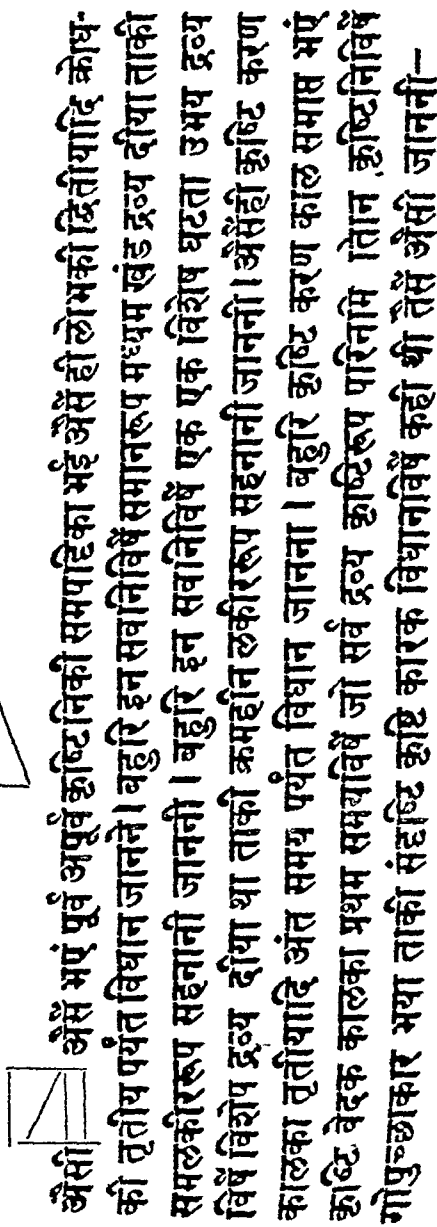 औसी औसैं भएं पूर्व अपूर्व कृष्टिनिकी समपट्टिका भई औसैं ही लोभकी द्वितीयादि क्रोध-
की तृतीय पर्यंत विधान जानने । बहुरि इन सवनिविषैं समानरूप मध्यम खंड द्रव्य दीया ताकी
समलकीररूप सहनानी जाननी । बहुरि इन सवनिविषैं एक एक विशेष घटता उभय द्रव्य
विषैं विशेष द्रव्य दीया था ताकी क्रमहीन लकीररूप सहनानी जाननी । औसैंही कृष्टि करण
कालका तृतीयादि अंत समय पर्यंत विधान जानना । बहुरि कृष्टि करण काल समाप्त भएं
कृष्टि वेदक कालका प्रथम समयविषैं जो सर्व द्रव्य कृष्टिरूप परिनमि तिन कृष्टिनिविषैं
गोपुच्छाकार भया ताकी संदृष्टि कृष्टि कारक विधानविषैं कही थी तैसैं औसी जाननी–